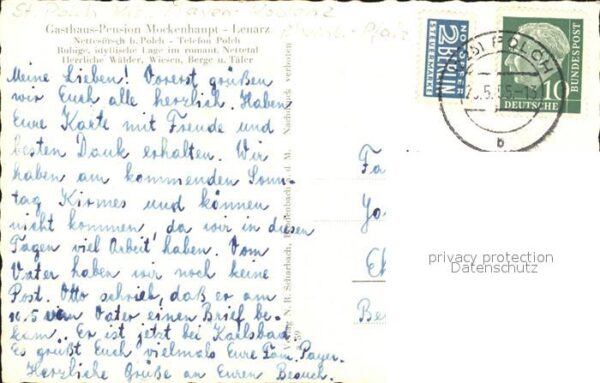 Gasthaus-Pension Mockenhaupt - Lenarz
Nettesürsch b. Polch - Telefon Polch
Ruhige, idyllische Lage im romant. Nettetal
Herrliche Wälder, Wiesen, Berge u. Täler
Meine Lieben! Vorerst grüßen
wir Euch alle herzlich. Haben
Eure Karte mit Freude und
besten Dank erhalten. Wir
haben am kommenden Sonn-
tag Kirmes und können
nicht kommen, da wir in diesen
Tagen viel Arbeit haben. Vom
Vater haben wir noch keine
Post. Otto schrieb, daß er am
10.5 von Vater einen Brief be-
kam. Er ist jetzt bei Karlsbad.
Es grüßt Euch vielmals Eure Fam. Payer.
Herzliche Grüße an Euren Besuch.
Verlag N. R. Scharbach, d. M. Nachdruck verboten
NOTOPFER
2 BERLIN
STEUERMARKE
POLCH
b
DEUTSCHE
BUNDESPOST
10
Fa
Jo
Eh
Be
privacy protection
Datenschutz